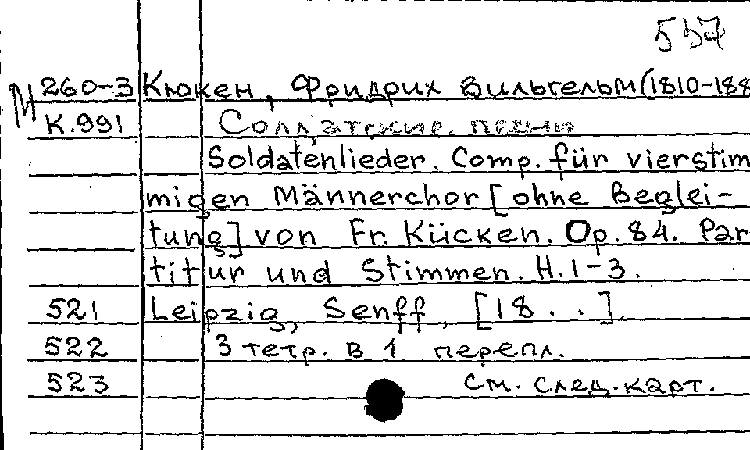 557
М 260-3 Кюкен, Фридрих Вильгельм (1810-188
К.991 Солдатские песни
Soldatenlieder. Comp. für vierstim
migen Männerchor [ohne Beglei-
tung] von Fr. Kücken. Op. 84. Par
titur und Stimmen. H. 1-3.
521 Leipzig, Senff, [18 . .].
522 3 тетр. в 1 перепл.
523 См. след. карт.